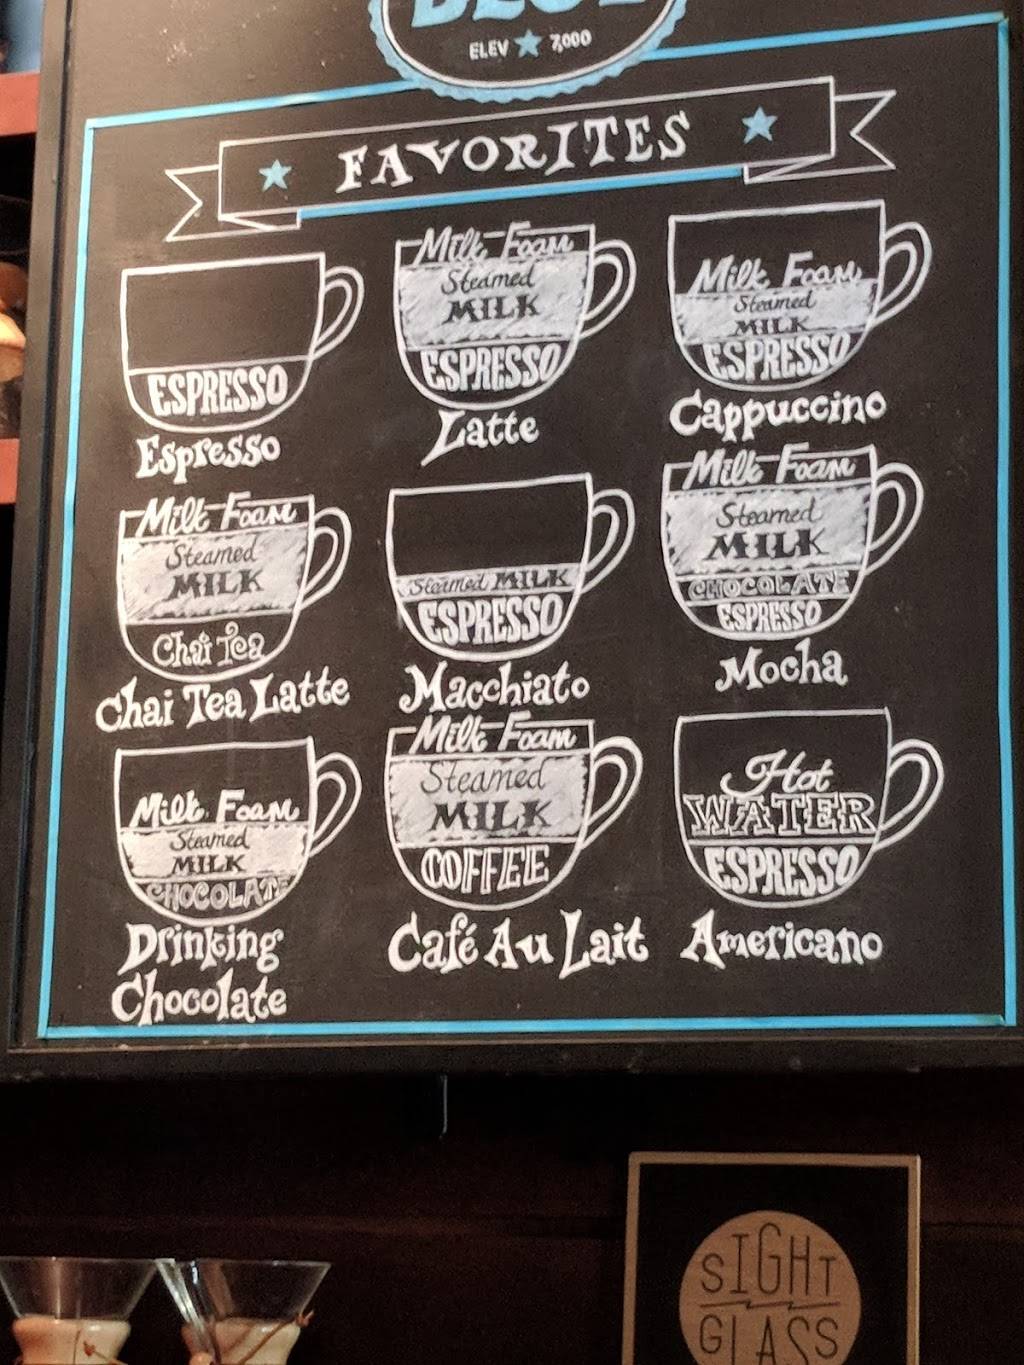 ELEV ★ 7,000
★ FAVORITES ★
ESPRESSO
Espresso
Milk Foam
Steamed
MILK
ESPRESSO
Latte
Milk Foam
Steamed
MILK
ESPRESSO
Cappuccino
Milk Foam
Steamed
MILK
Chai Tea
Chai Tea Latte
Steamed MILK
ESPRESSO
Macchiato
Milk Foam
Steamed
MILK
CHOCOLATE
ESPRESSO
Mocha
Milk Foam
Steamed
MILK
CHOCOLATE
Drinking
Chocolate
Milk Foam
Steamed
MILK
COFFEE
Café Au Lait
Hot
WATER
ESPRESSO
Americano
SIGHT
GLASS